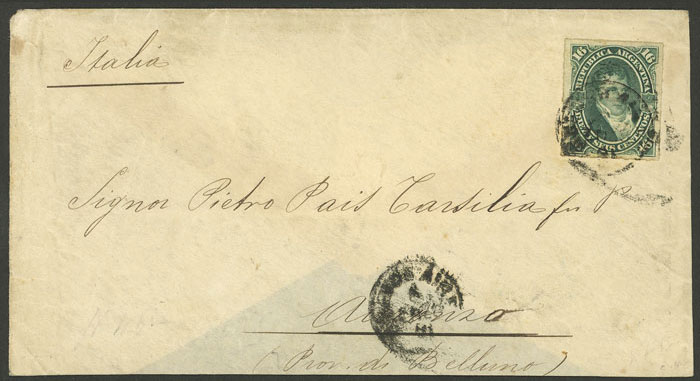 Italia
16 REPUBLICA ARGENTINA 16
DIEZ Y SEIS CENTAVOS
Signor Pietro Pais Tarsilia fu P.
NOS AIRE
Auronzo
(Prov. di Belluno)